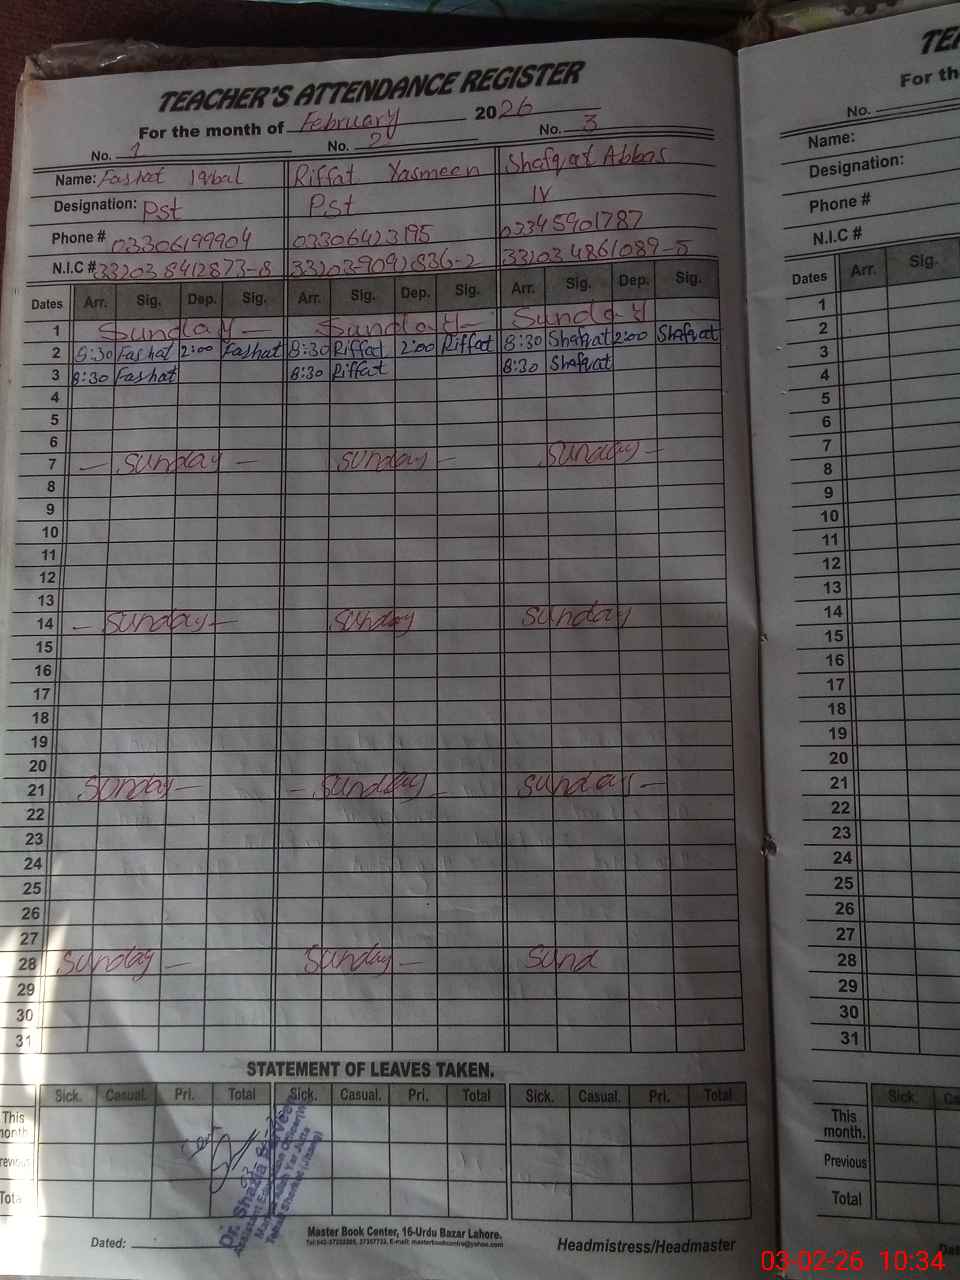 TEACHER'S ATTENDANCE REGISTER
For the month of February 2026
No. 1 No. 2 No. 3
Name: Fashat Iqbal Riffat Yasmeen Shafqat Abbas
Designation: Pst Pst IV
Phone # 03306199904 03306423195 03345901787
N.I.C # 33203 8412873-8 33203-9092836-2 33203 4861089-5
Dates Arr. Sig. Dep. Sig. Arr. Sig. Dep. Sig. Arr. Sig. Dep. Sig.
1 Sunday - Sunday - Sunday
2 8:30 Fashat 2:00 Fashat 8:30 Riffat 2:00 Riffat 8:30 Shafqat 2:00 Shafqat
3 8:30 Fashat 8:30 Riffat 8:30 Shafqat
4
5
6
7 - Sunday - Sunday - Sunday -
8
9
10
11
12
13
14 - Sunday - Sunday Sunday
15
16
17
18
19
20
21 Sunday - - Sunday - Sunday -
22
23
24
25
26
27
28 Sunday - Sunday - Sund
29
30
31
STATEMENT OF LEAVES TAKEN.
Sick. Casual. Pri. Total Sick. Casual. Pri. Total Sick. Casual. Pri. Total
This month.
Previous
Total
Dr. Shazia
Dated:
Master Book Center, 16-Urdu Bazar Lahore.
Headmistress/Headmaster
TEA
For th
No.
Name:
Designation:
Phone #
N.I.C #
Dates Arr. Sig.
1
2
3
4
5
6
7
8
9
10
11
12
13
14
15
16
17
18
19
20
21
22
23
24
25
26
27
28
29
30
31
Sick. Ca
This month.
Previous
Total
Dat
03-02-26 10:34